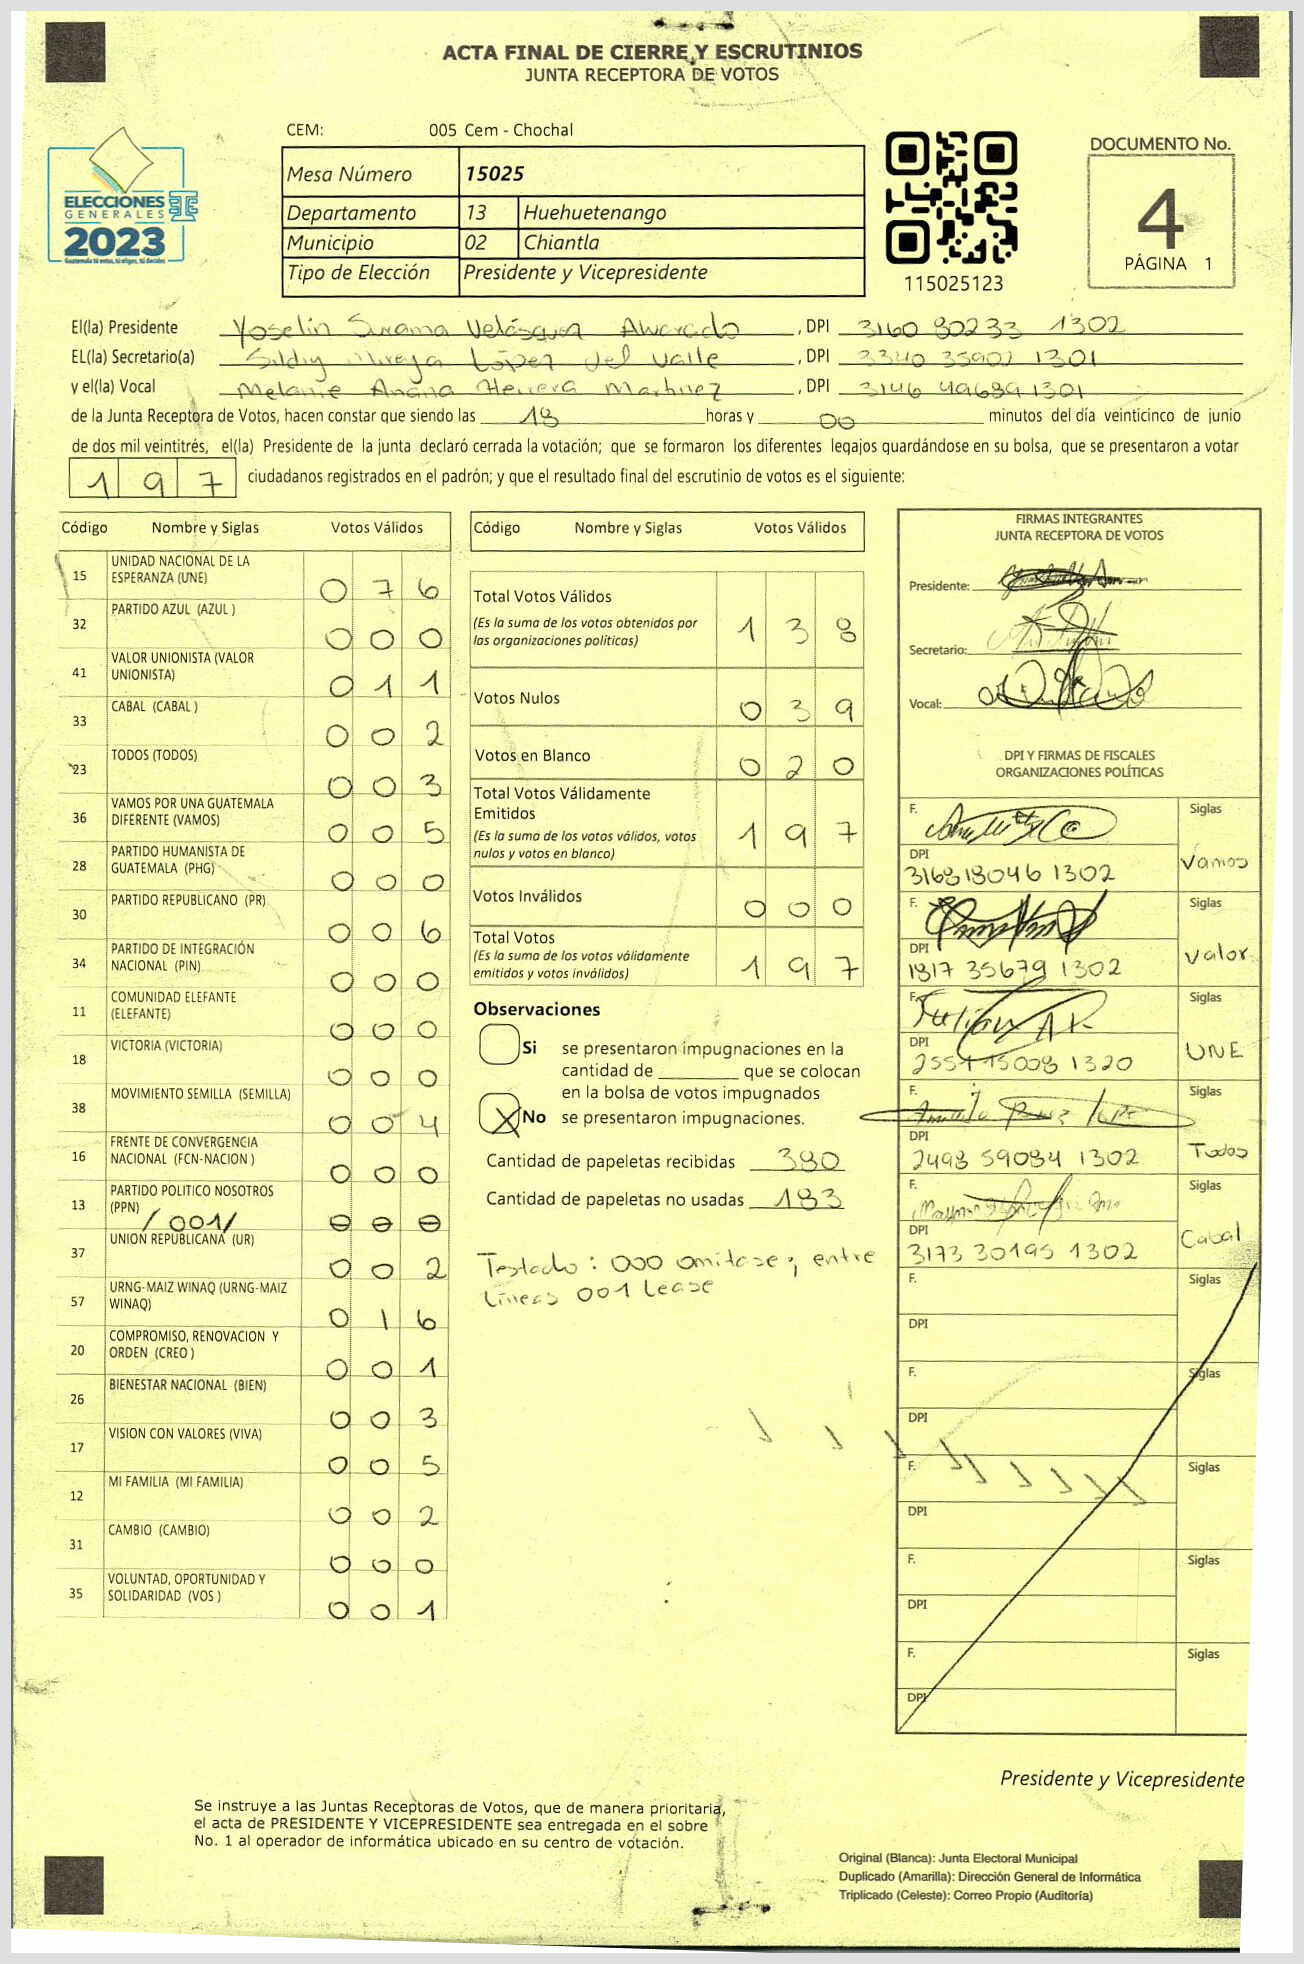 ACTA FINAL DE CIERRE Y ESCRUTINIOS
JUNTA RECEPTORA DE VOTOS
CEM: 005 Cem - Chochal
Mesa Número 15025
Departamento 13 Huehuetenango
Municipio 02 Chiantla
Tipo de Elección Presidente y Vicepresidente
ELECCIONES
GENERALES
2023
Guatemala tú votas, tú eliges, tú decides
115025123
DOCUMENTO No.
4
PÁGINA 1
El(la) Presidente Yoselin Surama Velásquez Alvarado, DPI 3160 80233 1302
EL(la) Secretario(a) López del Valle, DPI 3340 35902 1301
y el(la) Vocal Melanie Herrera Martinez, DPI 3146 49689 1301
de la Junta Receptora de Votos, hacen constar que siendo las 18 horas y 00 minutos del día veinticinco de junio
de dos mil veintitrés, el(la) Presidente de la junta declaró cerrada la votación; que se formaron los diferentes legajos guardándose en su bolsa, que se presentaron a votar
197 ciudadanos registrados en el padrón; y que el resultado final del escrutinio de votos es el siguiente:
Código Nombre y Siglas Votos Válidos
15 UNIDAD NACIONAL DE LA ESPERANZA (UNE) 076
32 PARTIDO AZUL (AZUL ) 000
41 VALOR UNIONISTA (VALOR UNIONISTA) 011
33 CABAL (CABAL ) 002
23 TODOS (TODOS) 003
36 VAMOS POR UNA GUATEMALA DIFERENTE (VAMOS) 005
28 PARTIDO HUMANISTA DE GUATEMALA (PHG) 000
30 PARTIDO REPUBLICANO (PR) 006
34 PARTIDO DE INTEGRACIÓN NACIONAL (PIN) 000
11 COMUNIDAD ELEFANTE (ELEFANTE) 000
18 VICTORIA (VICTORIA) 000
38 MOVIMIENTO SEMILLA (SEMILLA) 004
16 FRENTE DE CONVERGENCIA NACIONAL (FCN-NACION ) 000
13 PARTIDO POLITICO NOSOTROS (PPN) /001/ 000
37 UNION REPUBLICANA (UR) 002
57 URNG-MAIZ WINAQ (URNG-MAIZ WINAQ) 016
20 COMPROMISO, RENOVACION Y ORDEN (CREO ) 001
26 BIENESTAR NACIONAL (BIEN) 003
17 VISION CON VALORES (VIVA) 005
12 MI FAMILIA (MI FAMILIA) 002
31 CAMBIO (CAMBIO) 000
35 VOLUNTAD, OPORTUNIDAD Y SOLIDARIDAD (VOS ) 001
Código Nombre y Siglas Votos Válidos
Total Votos Válidos 138
(Es la suma de los votos obtenidos por
las organizaciones políticas)
Votos Nulos 039
Votos en Blanco 020
Total Votos Válidamente
Emitidos 197
(Es la suma de los votos válidos, votos
nulos y votos en blanco)
Votos Inválidos 000
Total Votos 197
(Es la suma de los votos válidamente
emitidos y votos inválidos)
Observaciones
Si se presentaron impugnaciones en la
cantidad de ________ que se colocan
en la bolsa de votos impugnados
X No se presentaron impugnaciones.
Cantidad de papeletas recibidas 380
Cantidad de papeletas no usadas 183
Testado: 000 omitase; entre
líneas 001 Lease
FIRMAS INTEGRANTES
JUNTA RECEPTORA DE VOTOS
Presidente:
Secretario:
Vocal:
DPI Y FIRMAS DE FISCALES
ORGANIZACIONES POLÍTICAS
F. Siglas
DPI Vamos
3168 18046 1302
F. Siglas
DPI Valor
1817 35679 1302
F. Siglas
DPI UNE
15008 1320
F. Siglas
DPI Todos
2498 59084 1302
F. Siglas
DPI Cabal
3173 30195 1302
F. Siglas
DPI
F. Siglas
DPI
F. Siglas
DPI
F. Siglas
DPI
F. Siglas
DPI
Presidente y Vicepresidente
Se instruye a las Juntas Receptoras de Votos, que de manera prioritaria,
el acta de PRESIDENTE Y VICEPRESIDENTE sea entregada en el sobre
No. 1 al operador de informática ubicado en su centro de votación.
Original (Blanca): Junta Electoral Municipal
Duplicado (Amarilla): Dirección General de Informática
Triplicado (Celeste): Correo Propio (Auditoría)